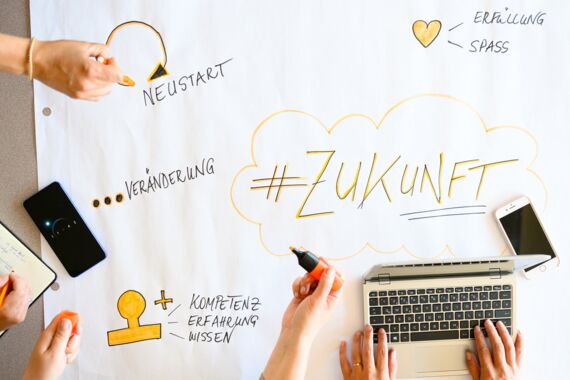 ERFÜLLUNG
SPASS
NEUSTART
VERÄNDERUNG
#ZUKUNFT
KOMPETENZ
ERFAHRUNG
WISSEN